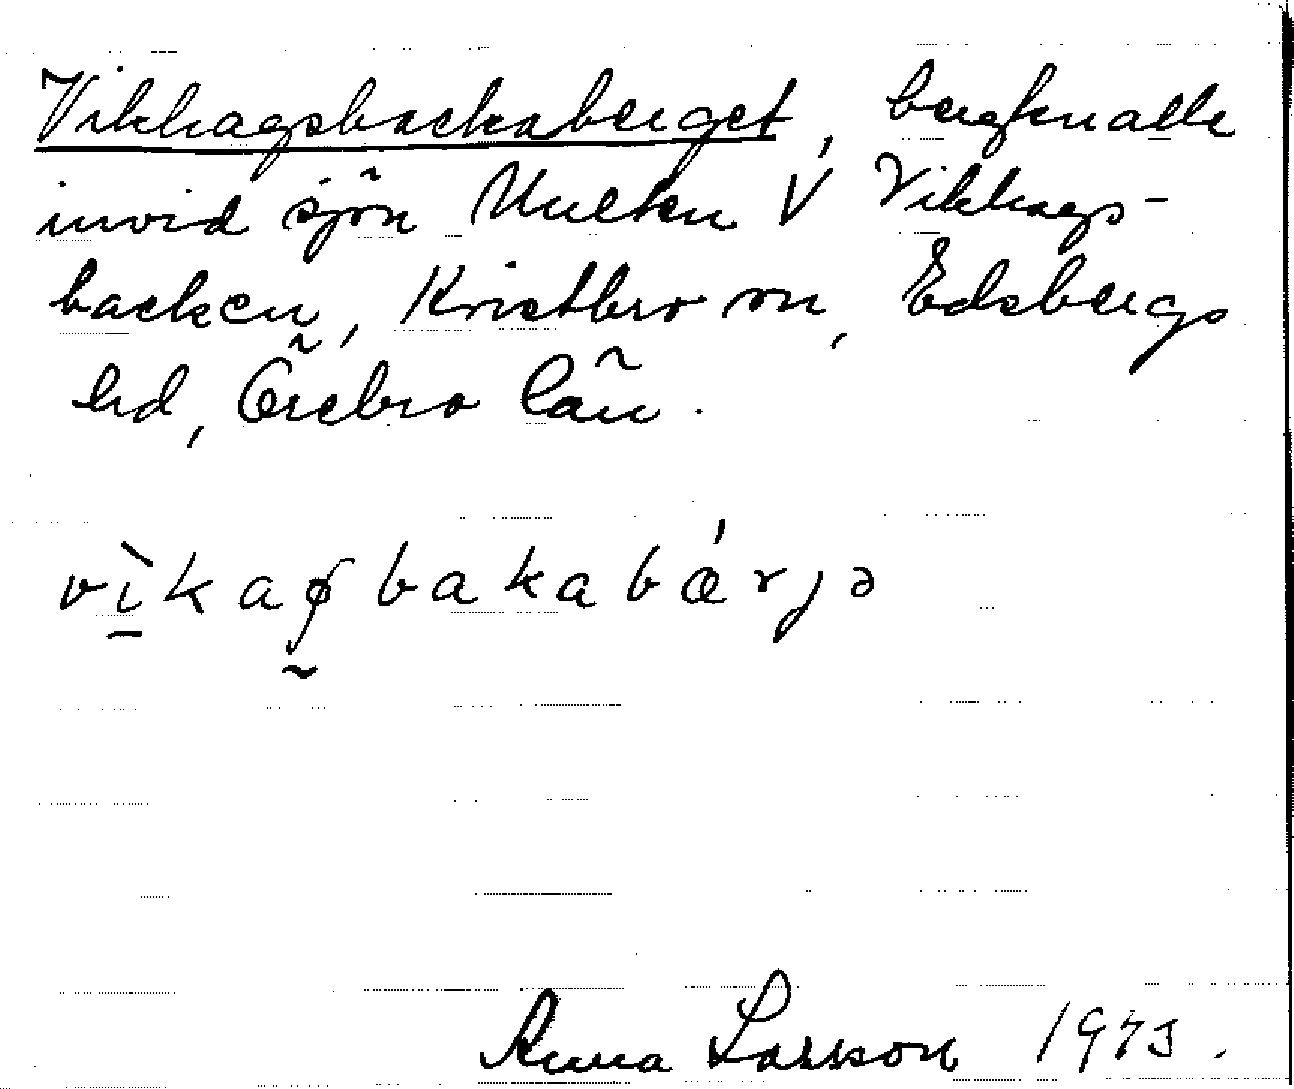 Vikhagsbackaberget, bergknalle
invid sjön Multen V Vikhags-
backen, Kvistbro sn, Edsbergs
hd, Örebro län.
vìkaɸbakabárjə
Anna Larsson 1973.